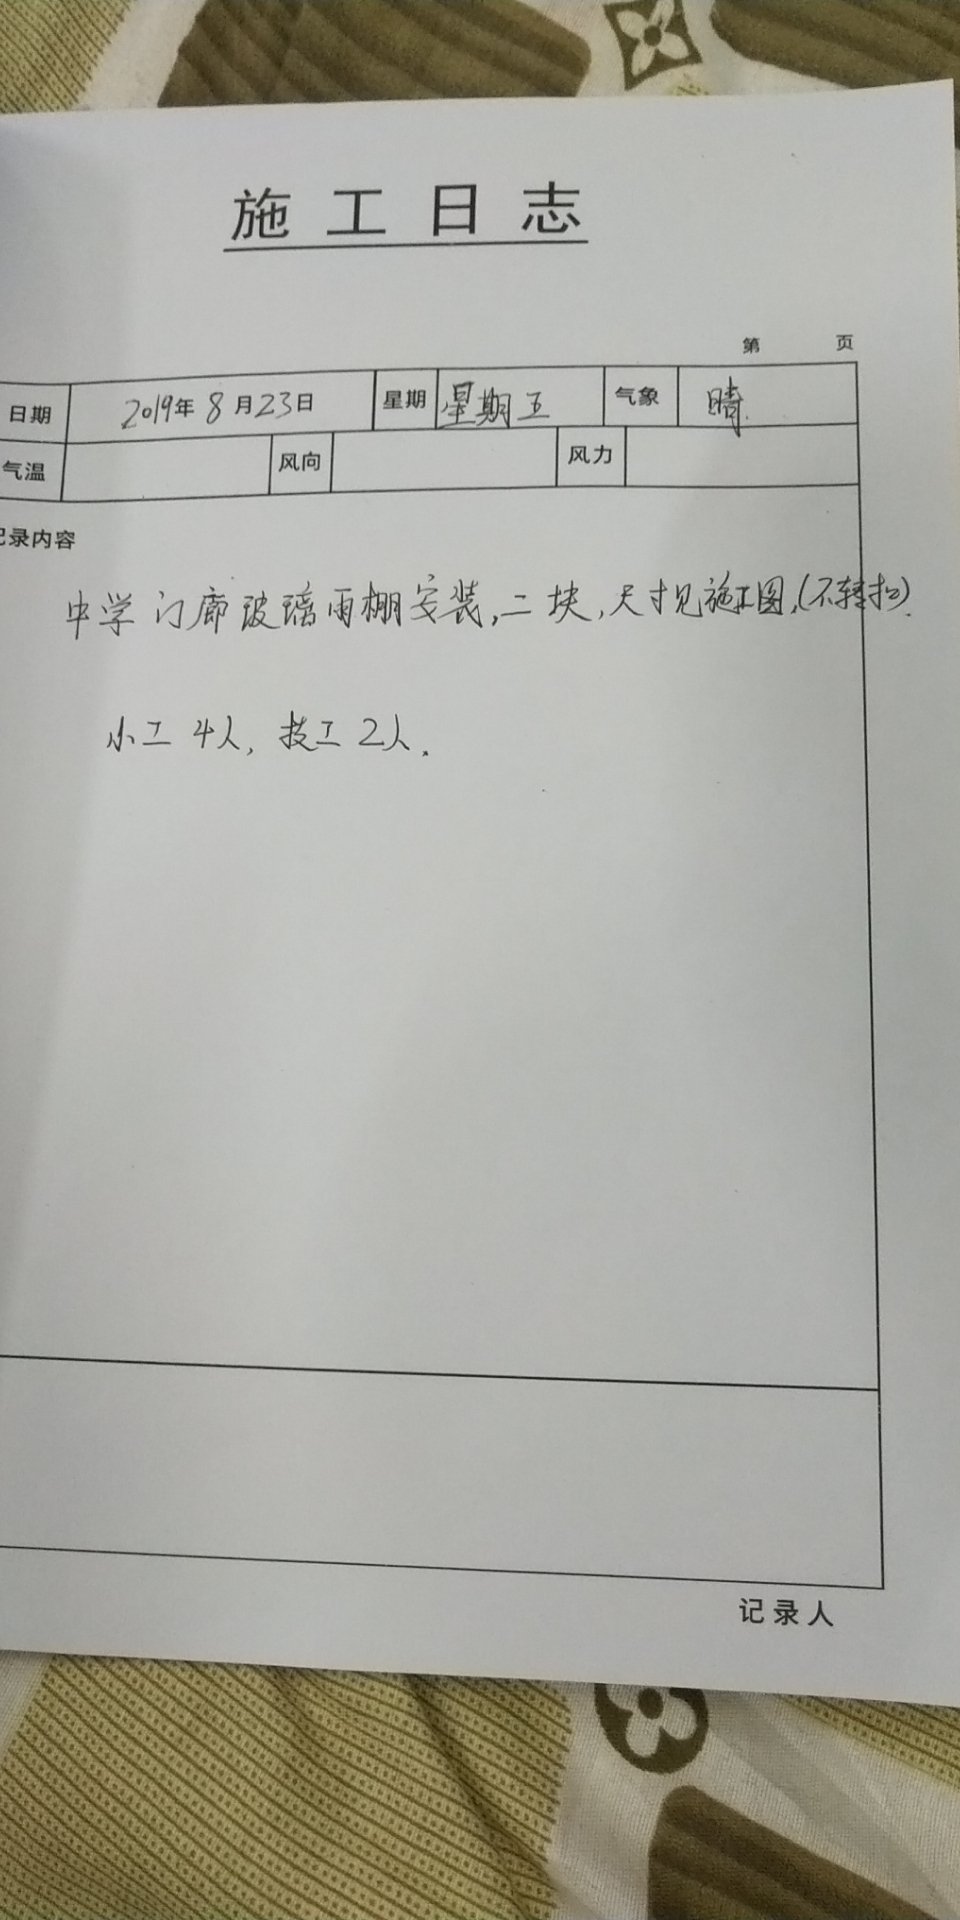 施工日志
第 页
日期 2019年8月23日 星期 星期五 气象 晴.
气温 风向 风力
记录内容
中学门廊玻璃雨棚安装,二块,尺寸见施工图.(不
小工4人, 技工2人.
记录人